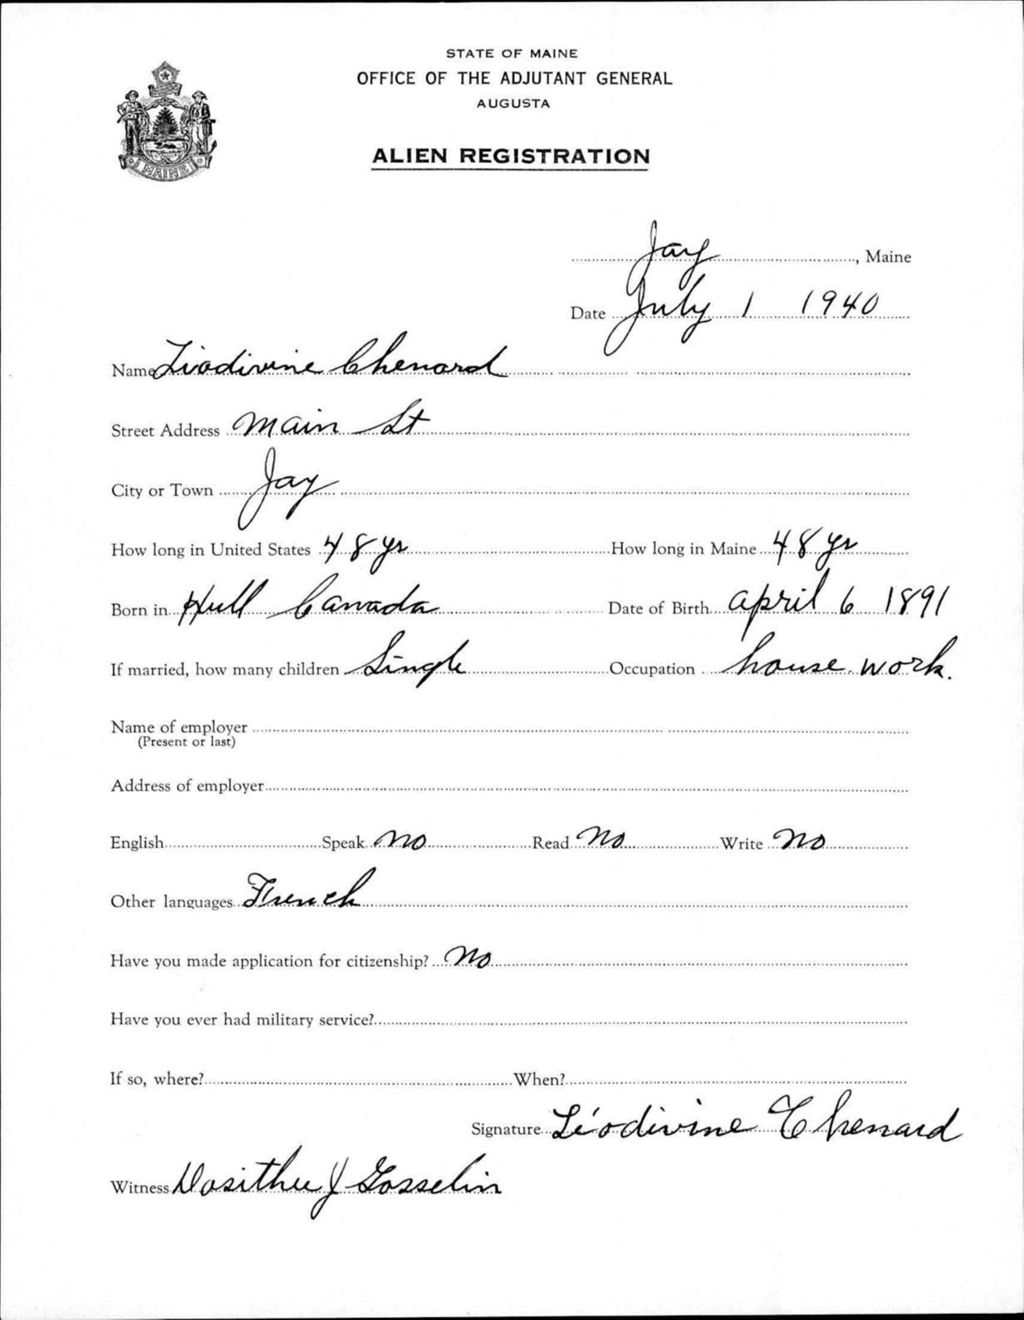 STATE OF MAINE
OFFICE OF THE ADJUTANT GENERAL
AUGUSTA
ALIEN REGISTRATION
MAINE
Jay, Maine
Date July 1 1940
Name Liodivine Chenard
Street Address Main St
City or Town Jay
How long in United States 48 yr How long in Maine 48 yr
Born in Hull Canada Date of Birth April 6 1891
If married, how many children Single Occupation house work.
Name of employer
(Present or last)
Address of employer
English Speak No Read No Write No
Other languages French
Have you made application for citizenship? No
Have you ever had military service?
If so, where? When?
Signature Léodivine Chenard
Witness Dosithee J Gosselin